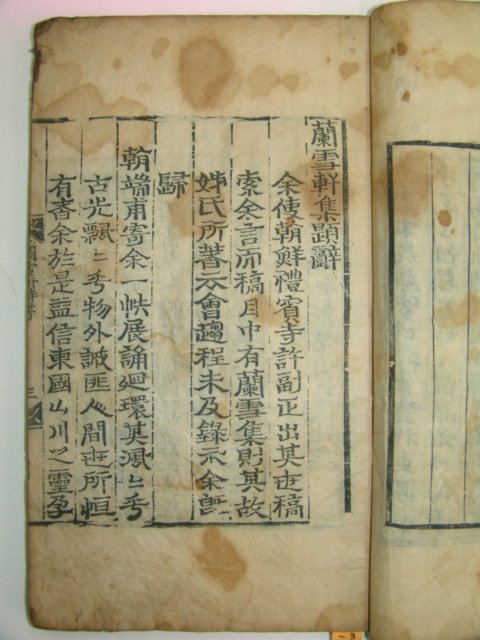 蘭雪軒集題辭
余使朝鮮禮賓寺許副正出其世稿
索余言而稿目中有蘭雪集則其故
姊氏所著云會趨程未及錄示余旣
歸
朝端甫寄余一帙展誦廻環其渢渢乎
古先飄飄乎物外誠匪人間世所恒
有者余於是益信東國山川之靈孕
三
-3